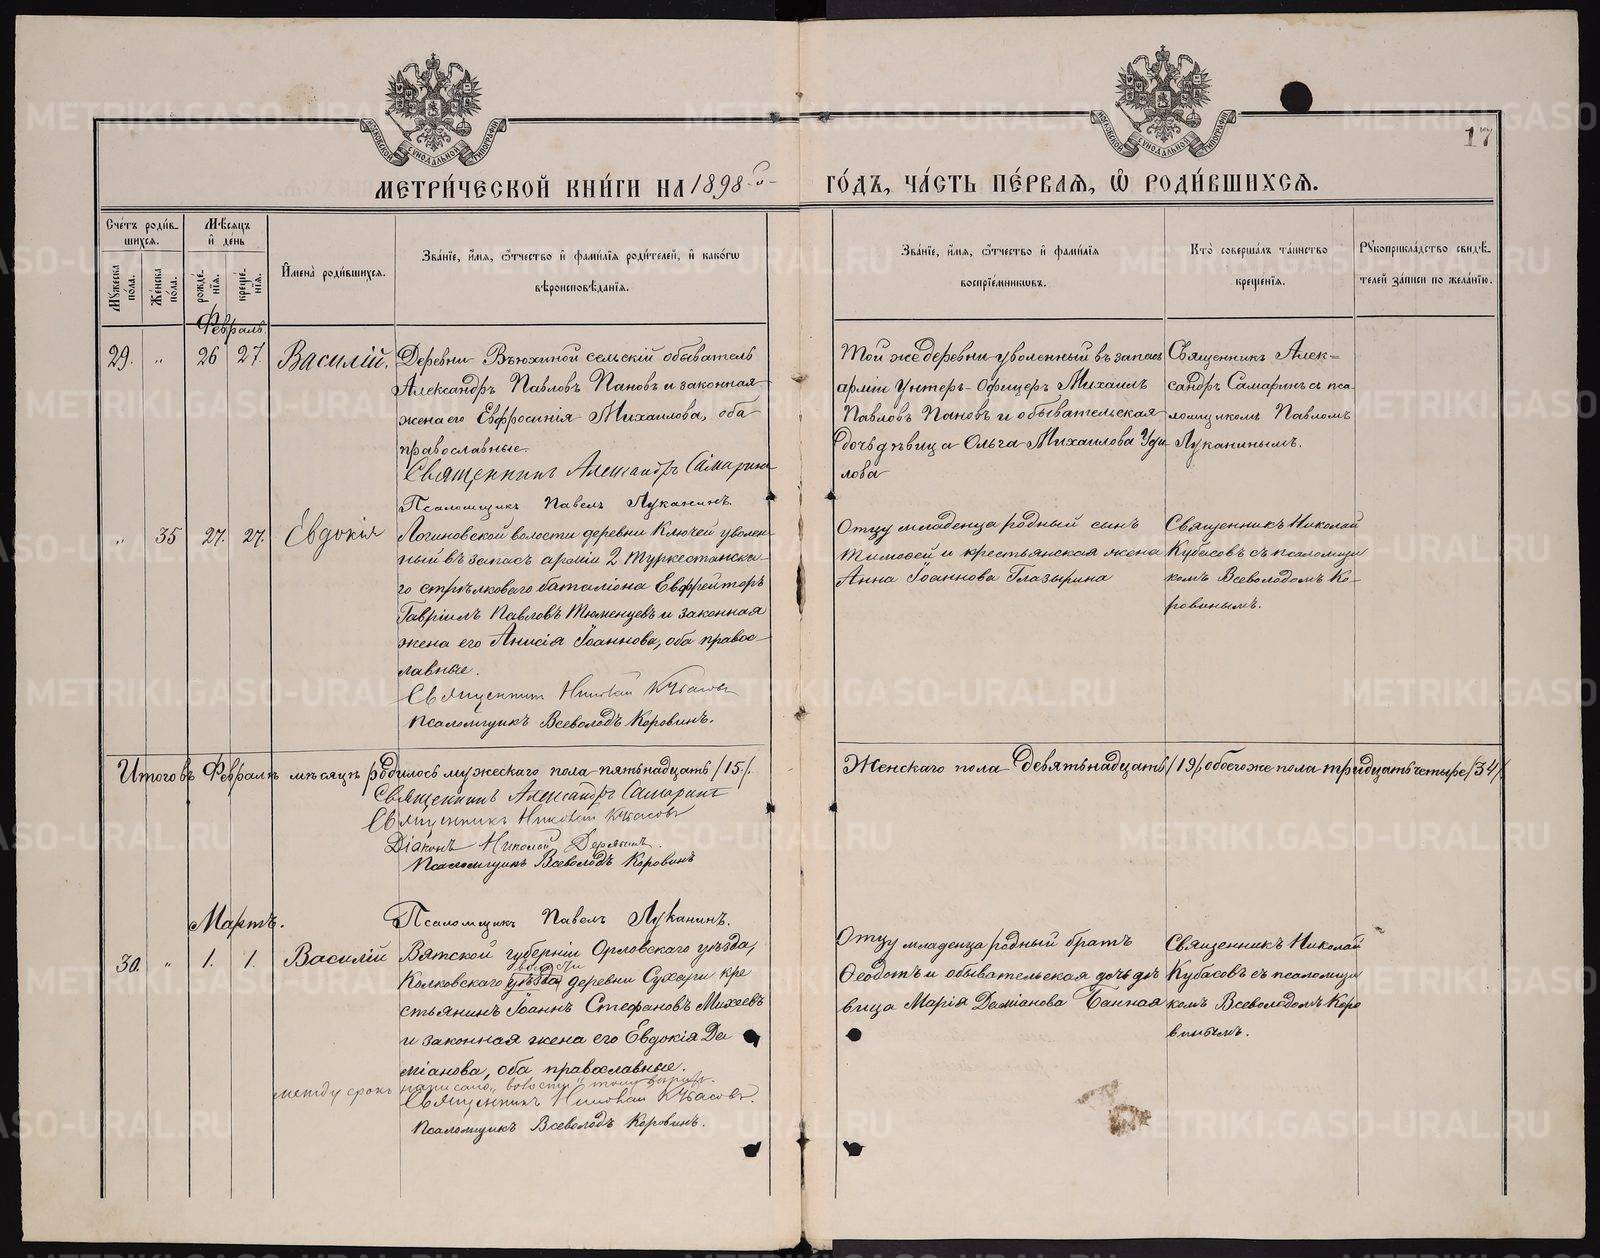 МОСКОВСКОЙ СѴНОДАЛЬНОЙ ТИПОГРАФІИ
МОСКОВСКОЙ СѴНОДАЛЬНОЙ ТИПОГРАФІИ
17
МЕТРИ́ЧЕСКОЙ КНИ́ГИ НА 1898-й
ГО́ДЪ, ЧА́СТЬ ПЕ́РВАѦ, Ѿ РОДИ́ВШИХСѦ.
Сче́тъ роди́в-
шихсѧ.
Мѣ́сѧцъ
и҆ день
Мꙋ́жеска по́ла.
Же́нска по́ла.
рожде́-
нїѧ.
креще́-
нїѧ.
И҆мена̀ роди́вшихсѧ.
Зва́нїе, и҆́мѧ, ѻ҆́тчество и҆ фами́лїѧ роди́телей, и҆ како́гѡ
вѣроисповѣ́данїѧ.
Зва́нїе, и҆́мѧ, ѻ҆́тчество и҆ фами́лїѧ
воспрїе́мникѡвъ.
Кто̀ соверша́лъ та́инство
креще́нїѧ.
Рꙋкоприкла́дство свидѣ́-
телей за́писи по жела́нїю.
Февраль.
29. " 26 27. Василій.
Деревни Вьюхиной сельскій обыватель
Александръ Павловъ Пановъ и законная
жена его Евфросинія Михаилова, оба
православные
Священникъ Александръ Самаринъ
Псаломщикъ Павелъ Луканинъ.
Той же деревни уволенный въ запасъ
арміи Унтеръ-Офицеръ Михаилъ
Павловъ Пановъ и обывательская
дочь дѣвица Ольга Михаилова Уди-
лова
Священникъ Алек-
сандръ Самаринъ съ пса-
ломщикомъ Павломъ
Луканинымъ.
" 35 27. 27. Евдокія
Логиновской волости деревни Ключей уволен-
ный въ запасъ арміи 2 Туркестанска-
го стрѣлковаго баталіона Евфрейторъ
Гавріилъ Павловъ Тюменцевъ и законная
жена его Анисія Іоаннова, оба правос-
лавные.
Священникъ Николай Кубасовъ
Псаломщикъ Всеволодъ Коровинъ.
Отцу младенца родный сынъ
Тимофей и крестьянская жена
Анна Іоаннова Глазырина
Священникъ Николай
Кубасовъ съ псаломщи-
комъ Всеволодомъ Ко-
ровинымъ.
Итого въ Февралѣ мѣсяцѣ родилось мужескаго пола пятьнадцать /15/.
Женскаго пола девятьнадцать /19/, обоего же пола тридцать четыре /34/.
Священникъ Александръ Самаринъ
Священникъ Николай Кубасовъ
Діаконъ Николай Дерябинъ.
Псаломщикъ Всеволодъ Коровинъ
Псаломщикъ Павелъ Луканинъ.
Мартъ.
30. " 1. 1. Василій
Вятской губерніи Орловскаго уѣзда,
волости
Колковскаго уѣзда деревни Сухари кре-
стьянинъ Іоаннъ Стефановъ Михеевъ
и законная жена его Евдокія Да-
міанова, оба православные.
между срокъ написано "волости" тому вѣрить.
Священникъ Николай Кубасовъ.
Псаломщикъ Всеволодъ Коровинъ.
Отцу младенца родный братъ
Ѳеодотъ и обывательская дочь дѣ-
вица Марія Даміанова Банная
Священникъ Николай
Кубасовъ съ псаломщи-
комъ Всеволодомъ Коро-
винымъ.
METRIKI.GASO-URAL.RU